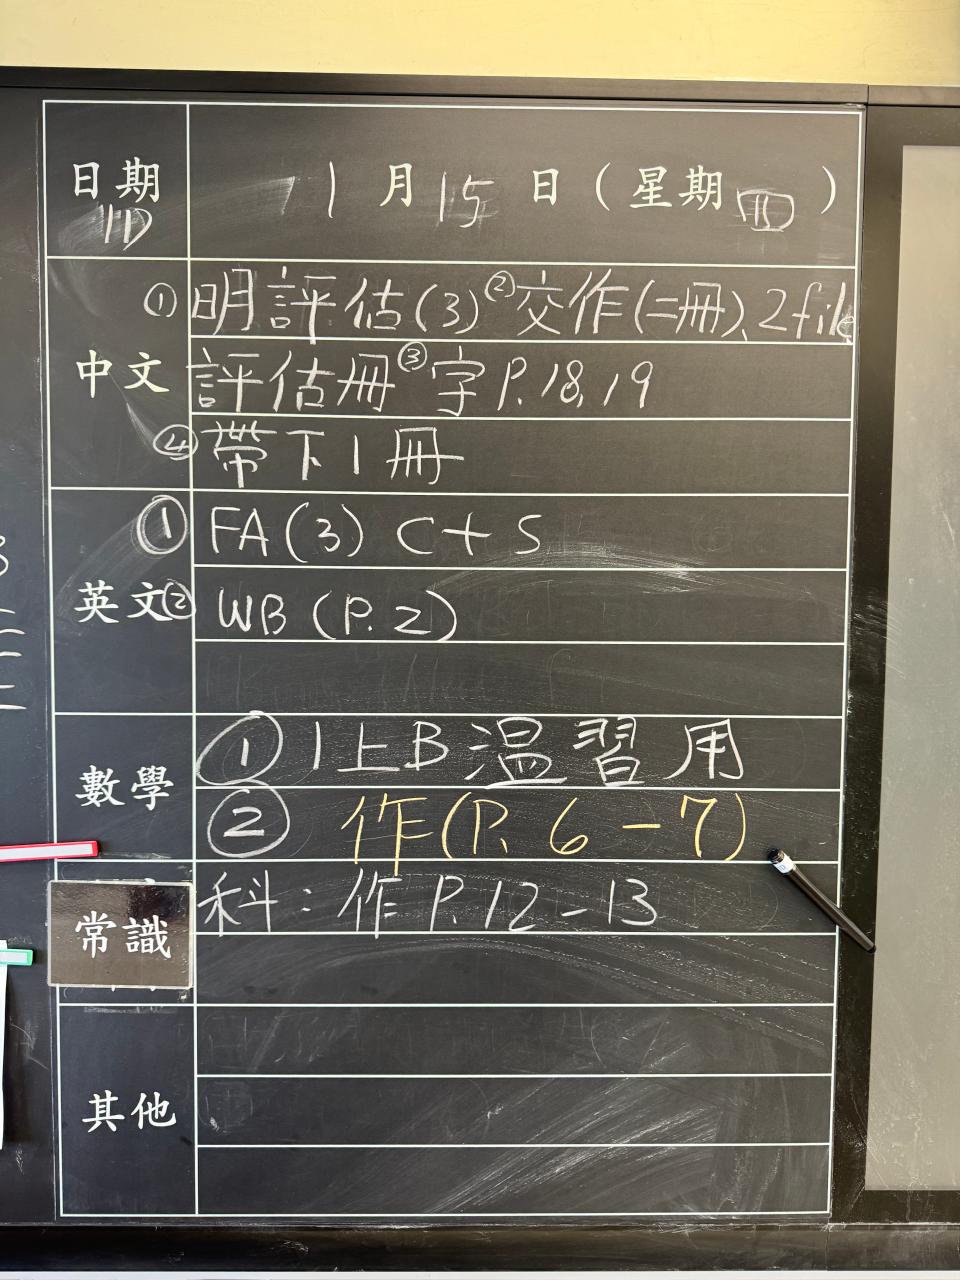 日期 1月15日(星期四)
1D
① 明評估(3) ② 交作(二冊)、2 file
中文 評估冊 ③ 字P.18,19
④ 帶下1冊
① FA(3) C+S
英文 ② WB (P.2)
數學 ① 1上B溫習用
② 作(P.6-7)
常識 科:作P.12-13
其他